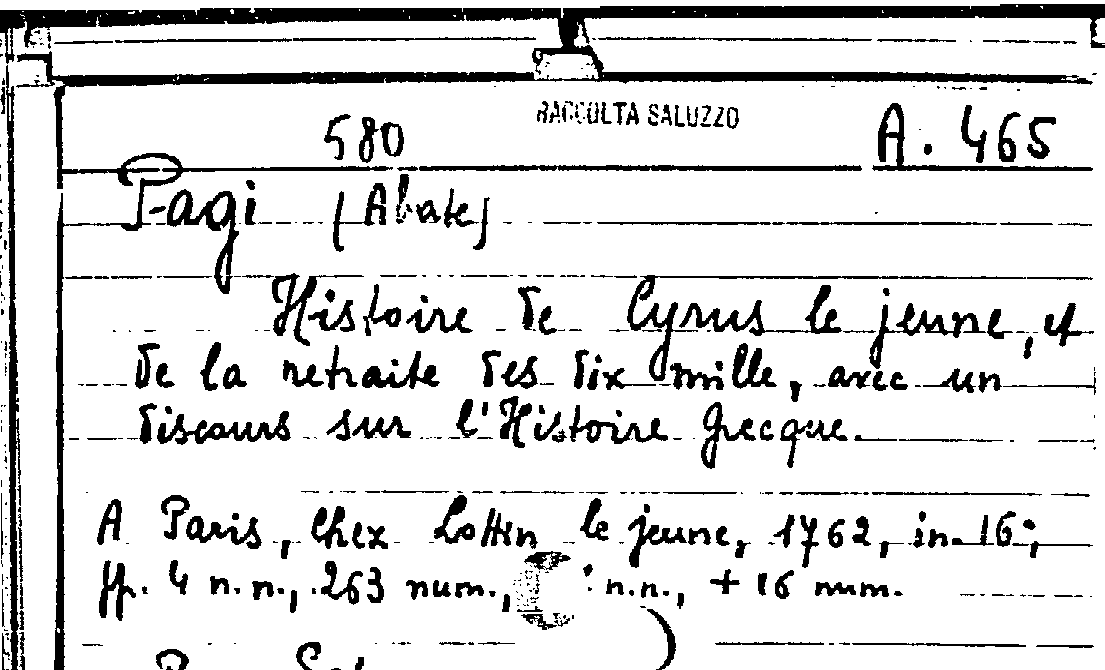 RACCOLTA SALUZZO
580 A. 465
Pagi (Abate)
Histoire de Cyrus le jeune, et
de la retraite des dix mille, avec un
discours sur l'Histoire Grecque.
A Paris, Chez Lottin le jeune, 1762, in-16°;
pp. 4 n.n., 263 num., n.n., + 16 num.